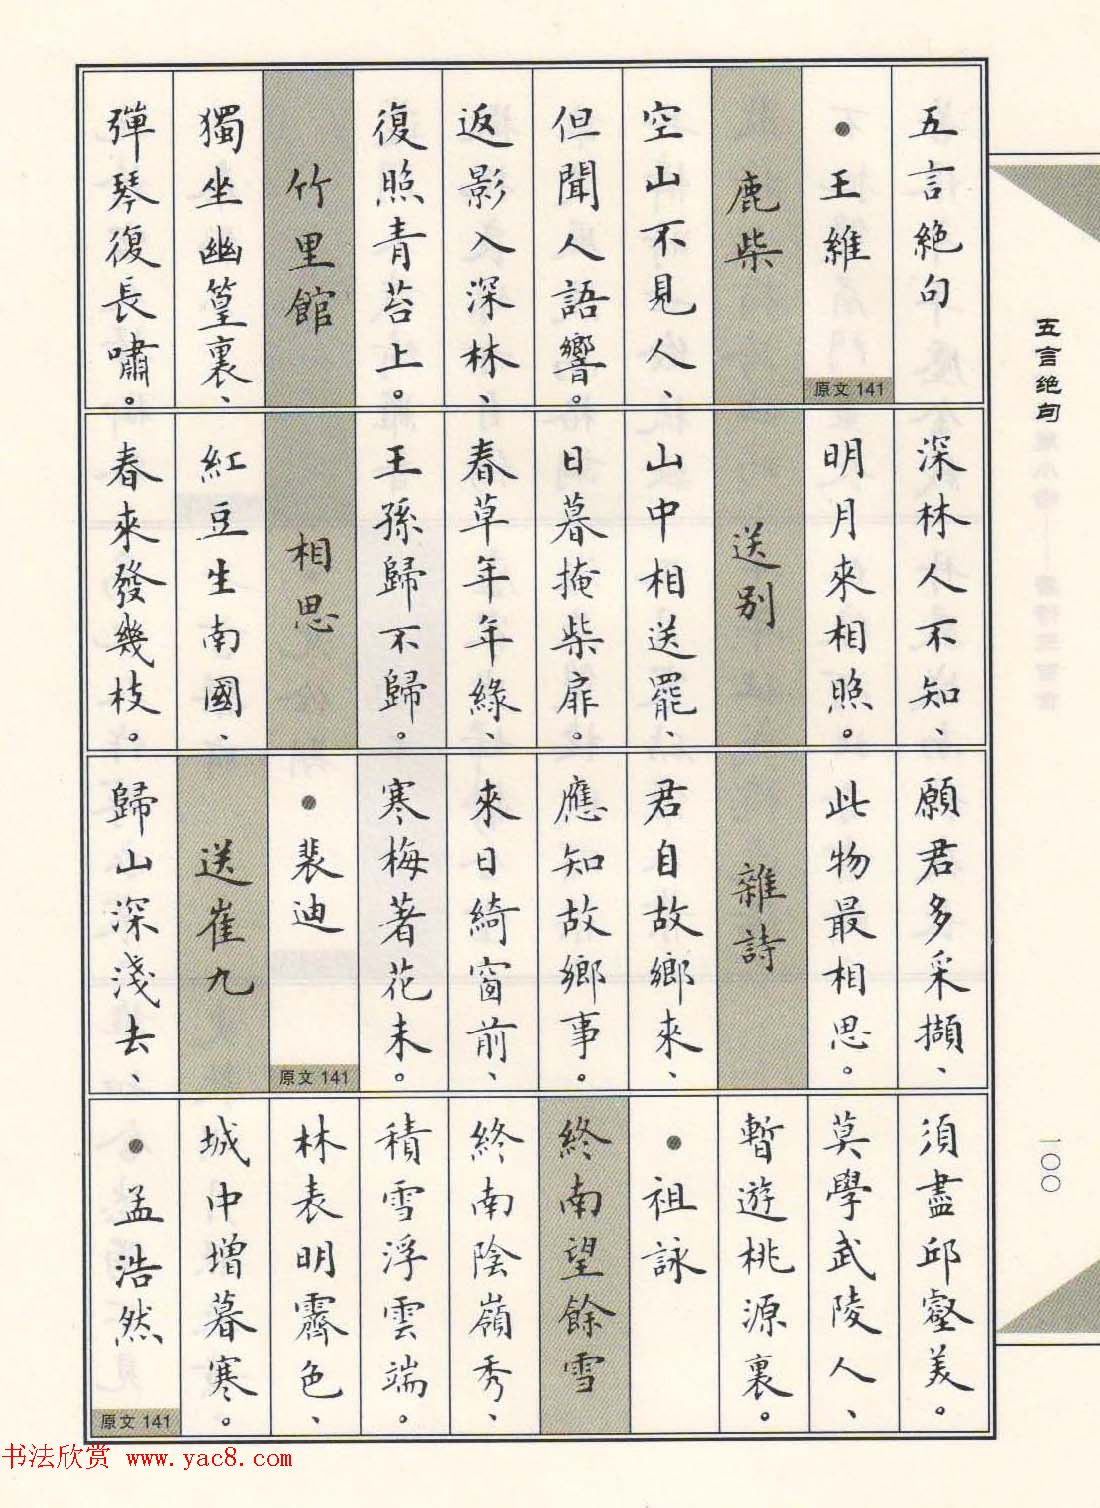 五言絶句
●王維
原文 141
鹿柴
空山不見人、
但聞人語響。
返影入深林、
復照青苔上。
竹里館
獨坐幽篁裏、
彈琴復長嘯。
深林人不知、
明月來相照。
送别
山中相送罷、
日暮掩柴扉。
春草年年綠、
王孫歸不歸。
相思
紅豆生南國、
春來發幾枝。
願君多采擷、
此物最相思。
雜詩
君自故鄉來、
應知故鄉事。
來日綺窗前、
寒梅著花未。
●裴迪
原文 141
送崔九
歸山深淺去、
須盡邱壑美。
莫學武陵人、
暫遊桃源裏。
●祖詠
終南望餘雪
終南陰嶺秀、
積雪浮雲端。
林表明霽色、
城中增暮寒。
●孟浩然
原文 141
五言绝句
一〇〇
书法欣赏 www.yac8.com